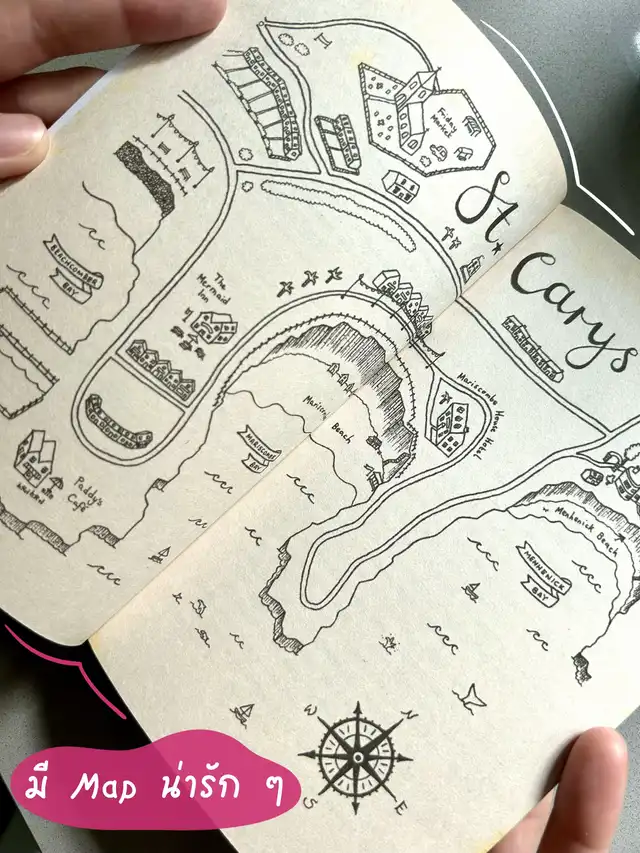 St.
Carys
Friday
Market
BEACHCOMBER
BAY
The
Mermaid
Inn
Mariscombe
House Hotel
Beach
MARISCOMBE
BAY
Paddy's
Café
Mennenick Beach
MENNENICK
BAY
W
N
S
E
มี Map น่ารัก ๆ